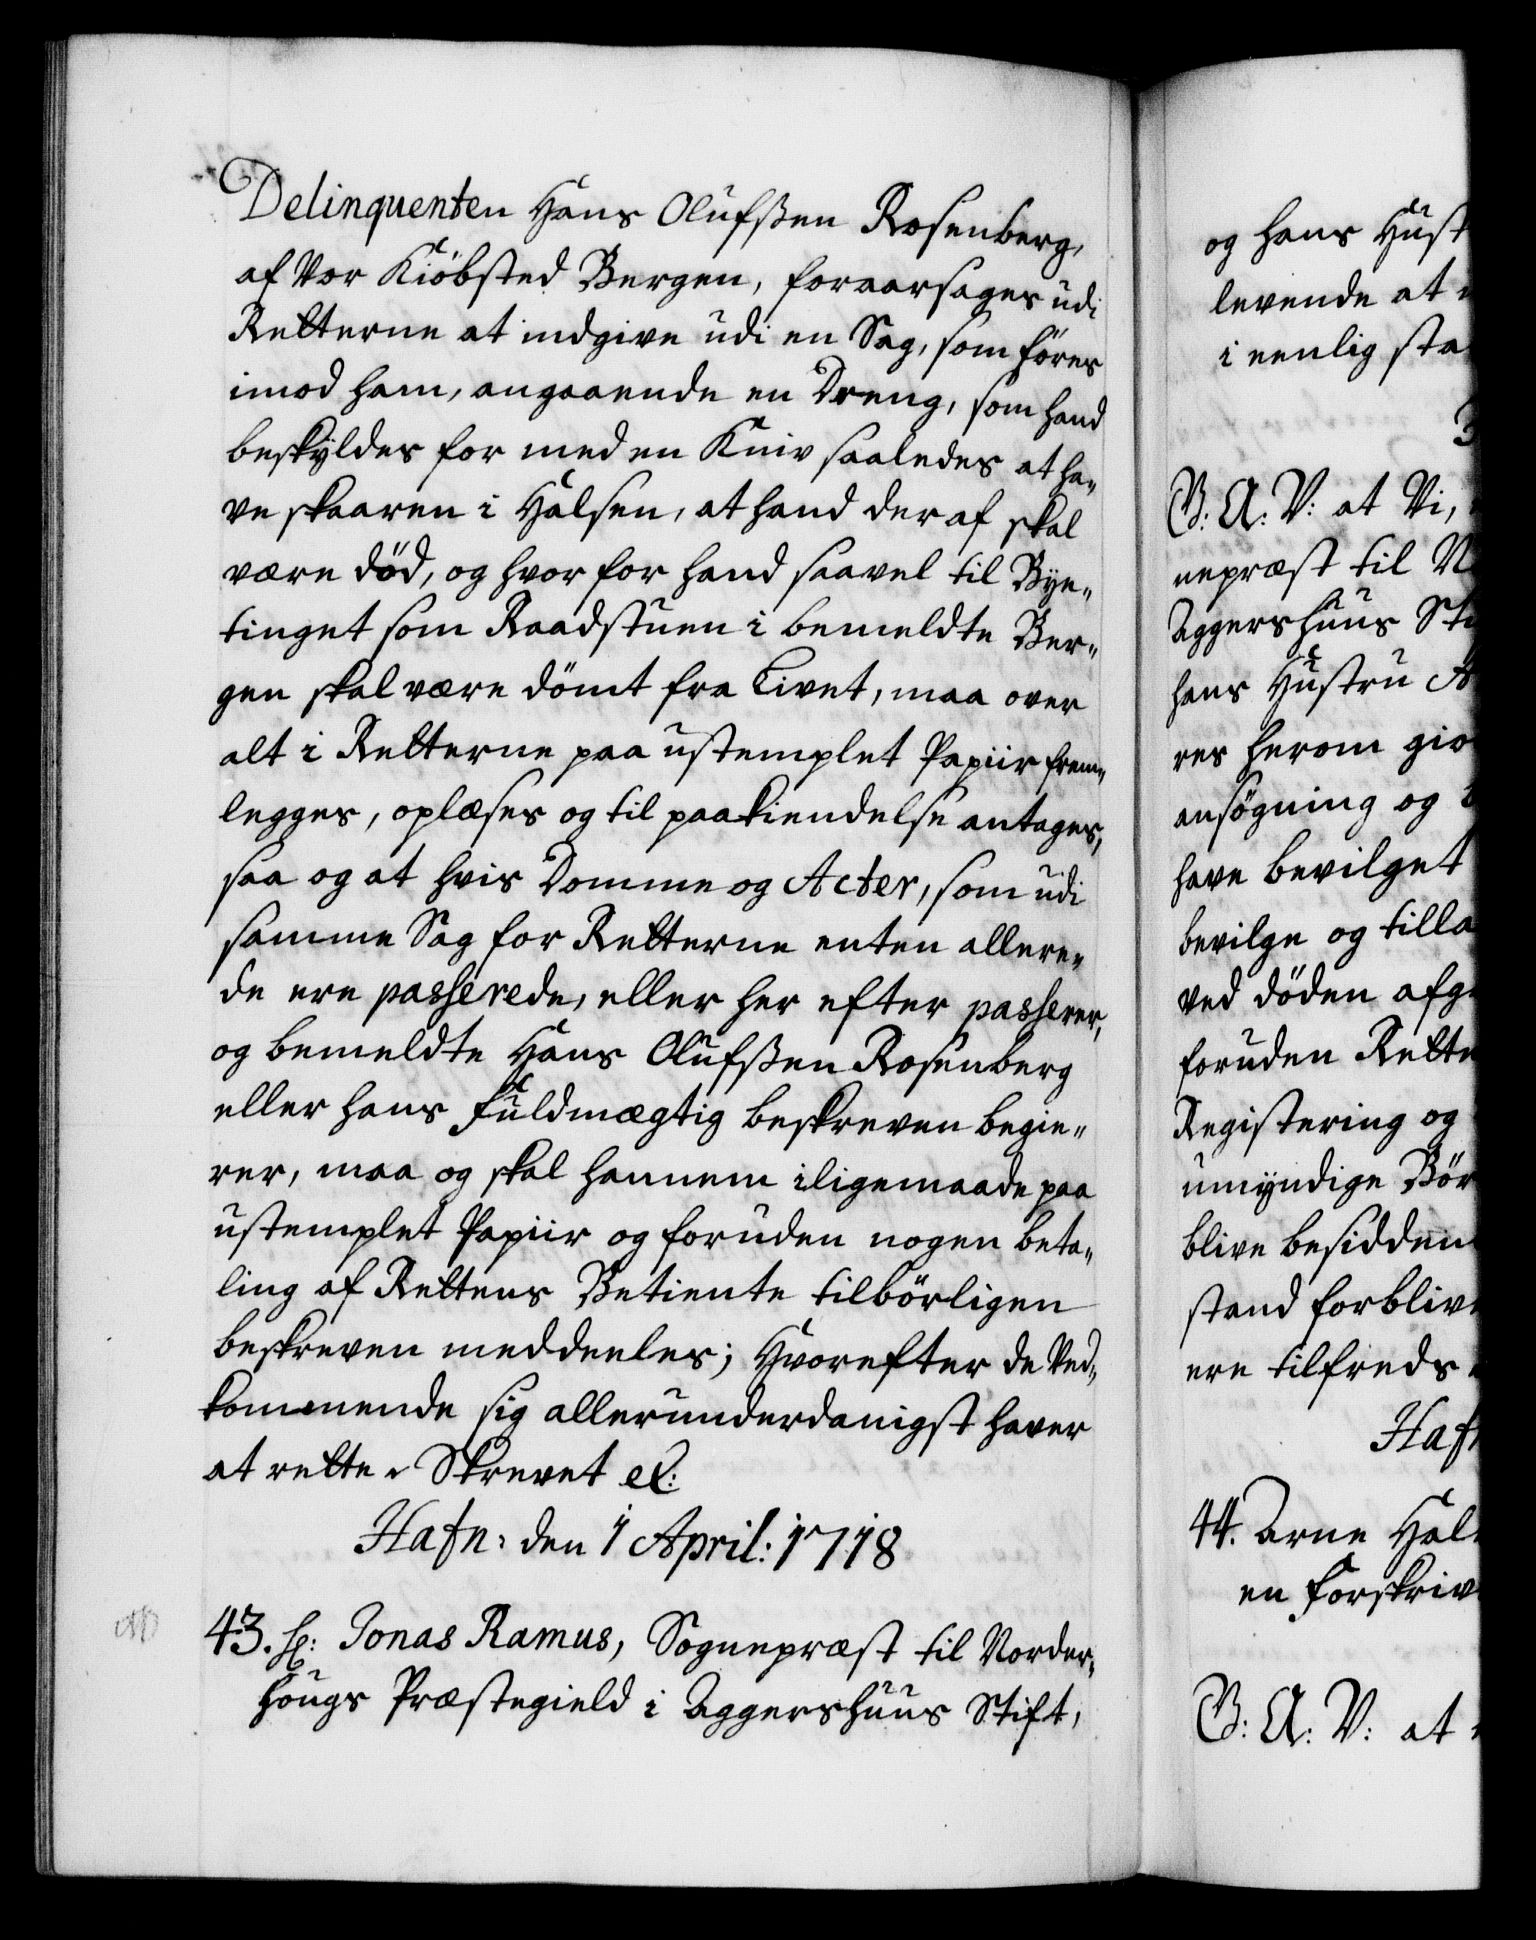 Delinquenten Hans Olufssen Rosenberg,
af Vor Kiöbsted Bergen, foraarsages udi
Retterne at indgive udi en Sag, som föres
imod ham, angaaende en Dreng, som hand
beskyldes for med en Kniv saaledes at ha-
ve skaaren i Halsen, at hand deraf skal
være död, og hvor for hand saavel til Bye-
tinget som Raadstuen i bemeldte Ber-
gen skal være dömt fra Livet, maa over
alt i Retterne paa ustemplet Papiir frem-
legges, oplæses og til paakiendelse antages,
saa og at hvis Domme og Acter, som udi
samme Sag for Retterne enten allere-
de ere passerede, eller her efter passerer,
og bemeldte Hans Olufssen Rosenberg
eller hans fuldmægtig beskreven begie-
rer, maa og skal hannem iligemaade paa
ustemplet Papiir og foruden nogen beta-
ling af Rettens Betiente tilbörligen
beskreven meddeeles; Hvorefter de Ved-
kommende sig allerunderdanigst haver
at rette. Skrevet etc:
Hafn: den 1 April: 1718
43. Hr: Jonas Ramus, Sognepræst til Norder-
hougs Præstegield i Aggershuus Stift,
og hans Hust
levende at
i eenlig sta
B: A: V: at Vi,
nepræst til N
Aggershuus Sti
hans Hustru A
res herom gio
ansögning og
have bevilget
bevilge og tilla
ved döden afg
foruden Rette
Registering og
umyndige Bör
blive besidden
stand forblive
ere tilfreds
Hafn
44. Arne Hal
en forskriv
B: A: V: at